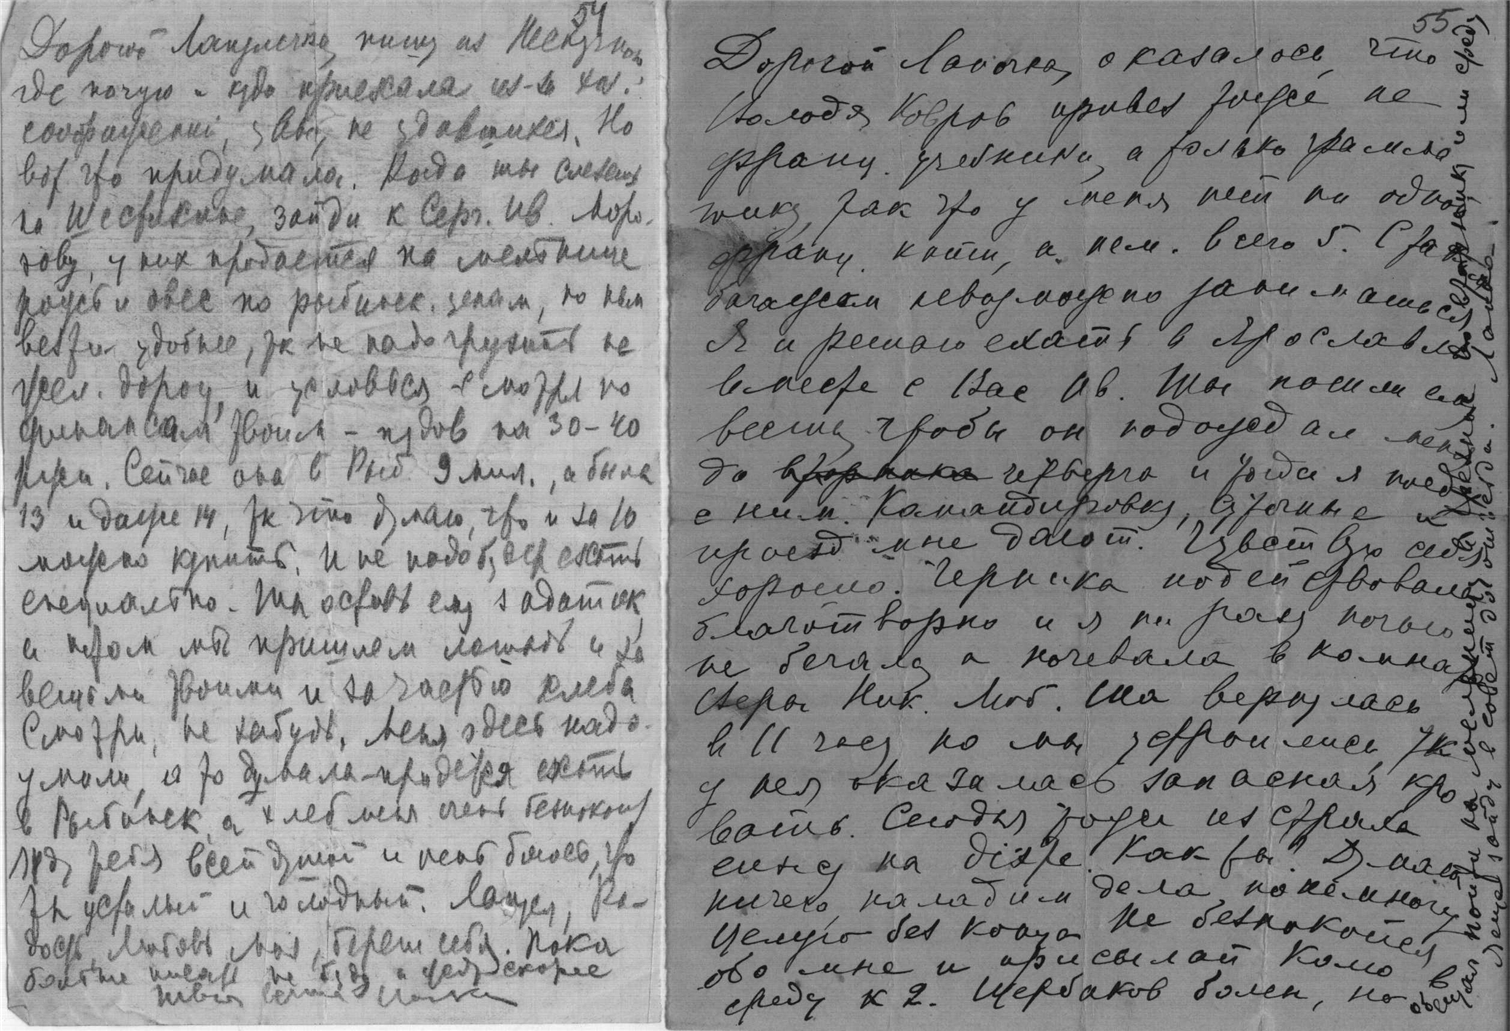 54
Дорогой Лапулечка, пишу из
где ночую и куда приехала из-за хоз.
соображений, не удавшихся. Но
вот что придумала. Когда ты слезешь
на Шестихине, зайди к Серг. Ив. Моро-
зову, у них продается на мельнице
рожь и овес по рыбинск. ценам, но нам
везти удобнее, тк не надо грузить на
жел. дорогу, и условься смотря по
финансам твоим – пудов на 30–40
ржи. Сейчас она в Рыб 9 мил., а была
13 и даже 14, тк что думаю, что и за 10
можно купить. И не надо будет ехать
специально. Ты оставь ему задаток,
а потом мы пришлем лошадь и за
вещами твоими и за частью хлеба
Смотри, не забудь. Меня здесь надо-
умили, а то думала – придется ехать
в Рыбинск, а хлеб меня очень беспокоит
Жду тебя всей душой и боюсь, что
ты усталый и голодный. Лапуся, Ра-
дость, Любовь моя, береги себя. Пока
больше писать не буду и жду скорее
55
Дорогой Лапочка, оказалось, что
Володя Ковров привез тоже не
франц. учебники, а только грамма-
тику, так что у меня нет ни одной
франц. книги, а нем. всего 5. С таким
багажом невозможно заниматься.
Я и решаю ехать в Ярославль
вместе с Вас Ив. Ты пошли ему
весть, чтобы он подождал меня
до вторника четверга и тогда я поеду
с ним. Командировку, суточные и
проезд мне дают. Чувствую себя
хорошо. Черника подействовала
благотворно и я ни разу ночью
не бегала, а ночевала в комнате
Веры Ник. Люб. Она вернулась
в 11 час, но мы устроились, тк
у нея оказалась запасная кро
вать. Сегодня тоже из
сижу на diete. Как ты? Думаю,
ничего, наладим дела понемногу
Целую без конца Не беспокойся
обо мне и присылай Колю в
среду к 2. Щербаков болен, но
обещал пойти на мельницу